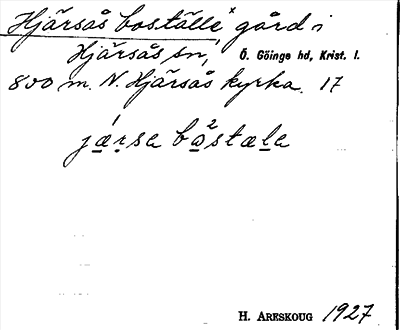 Hjärsås boställe,ˣ gård i
Hjärsås sn, Ö. Göinge hd, Krist. l.
800 m. N. Hjärsås kyrka. 17
jæ̱ṛsa bo̱stæḻa
H. ARESKOUG 1927